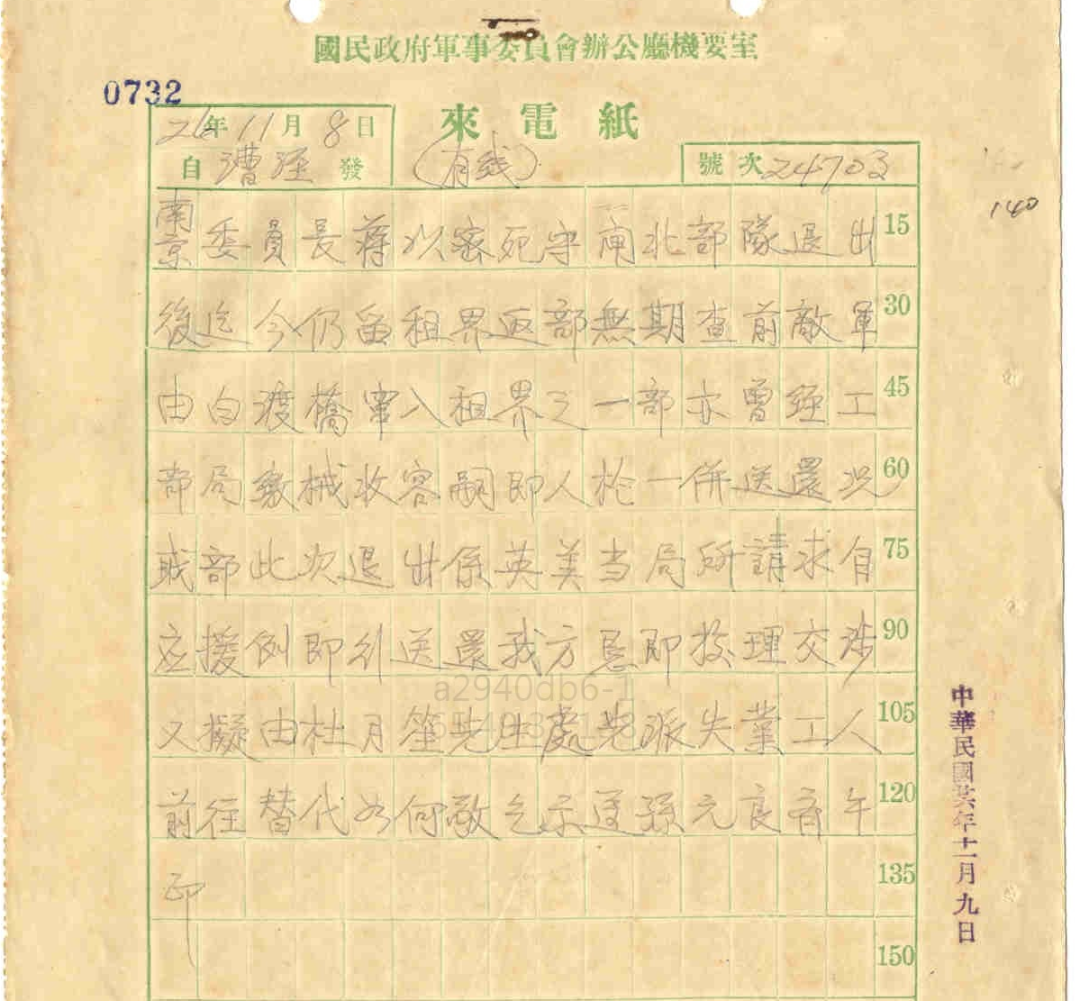 國民政府軍事委員會辦公廳機要室
0732
來電紙
26年11月8日
自漕涇發
(有綫)
號次24703
140
南京委員長蔣以密死守閘北部隊退出 15
後迄今仍留租界返部無期查前敵軍 30
由白渡橋竄入租界之一部亦曾經工 45
部局繳械收容嗣即人枪一併送還况 60
我部此次退出係英美当局所請求自 75
应援例即刻送還我方恳即按理交涉 90
又擬由杜月笙先生處先派失業工人 105
前往替代如何敬乞示遵孫元良齊午 120
印 135
150
中華民國廿六年十一月九日
a2940db6-1